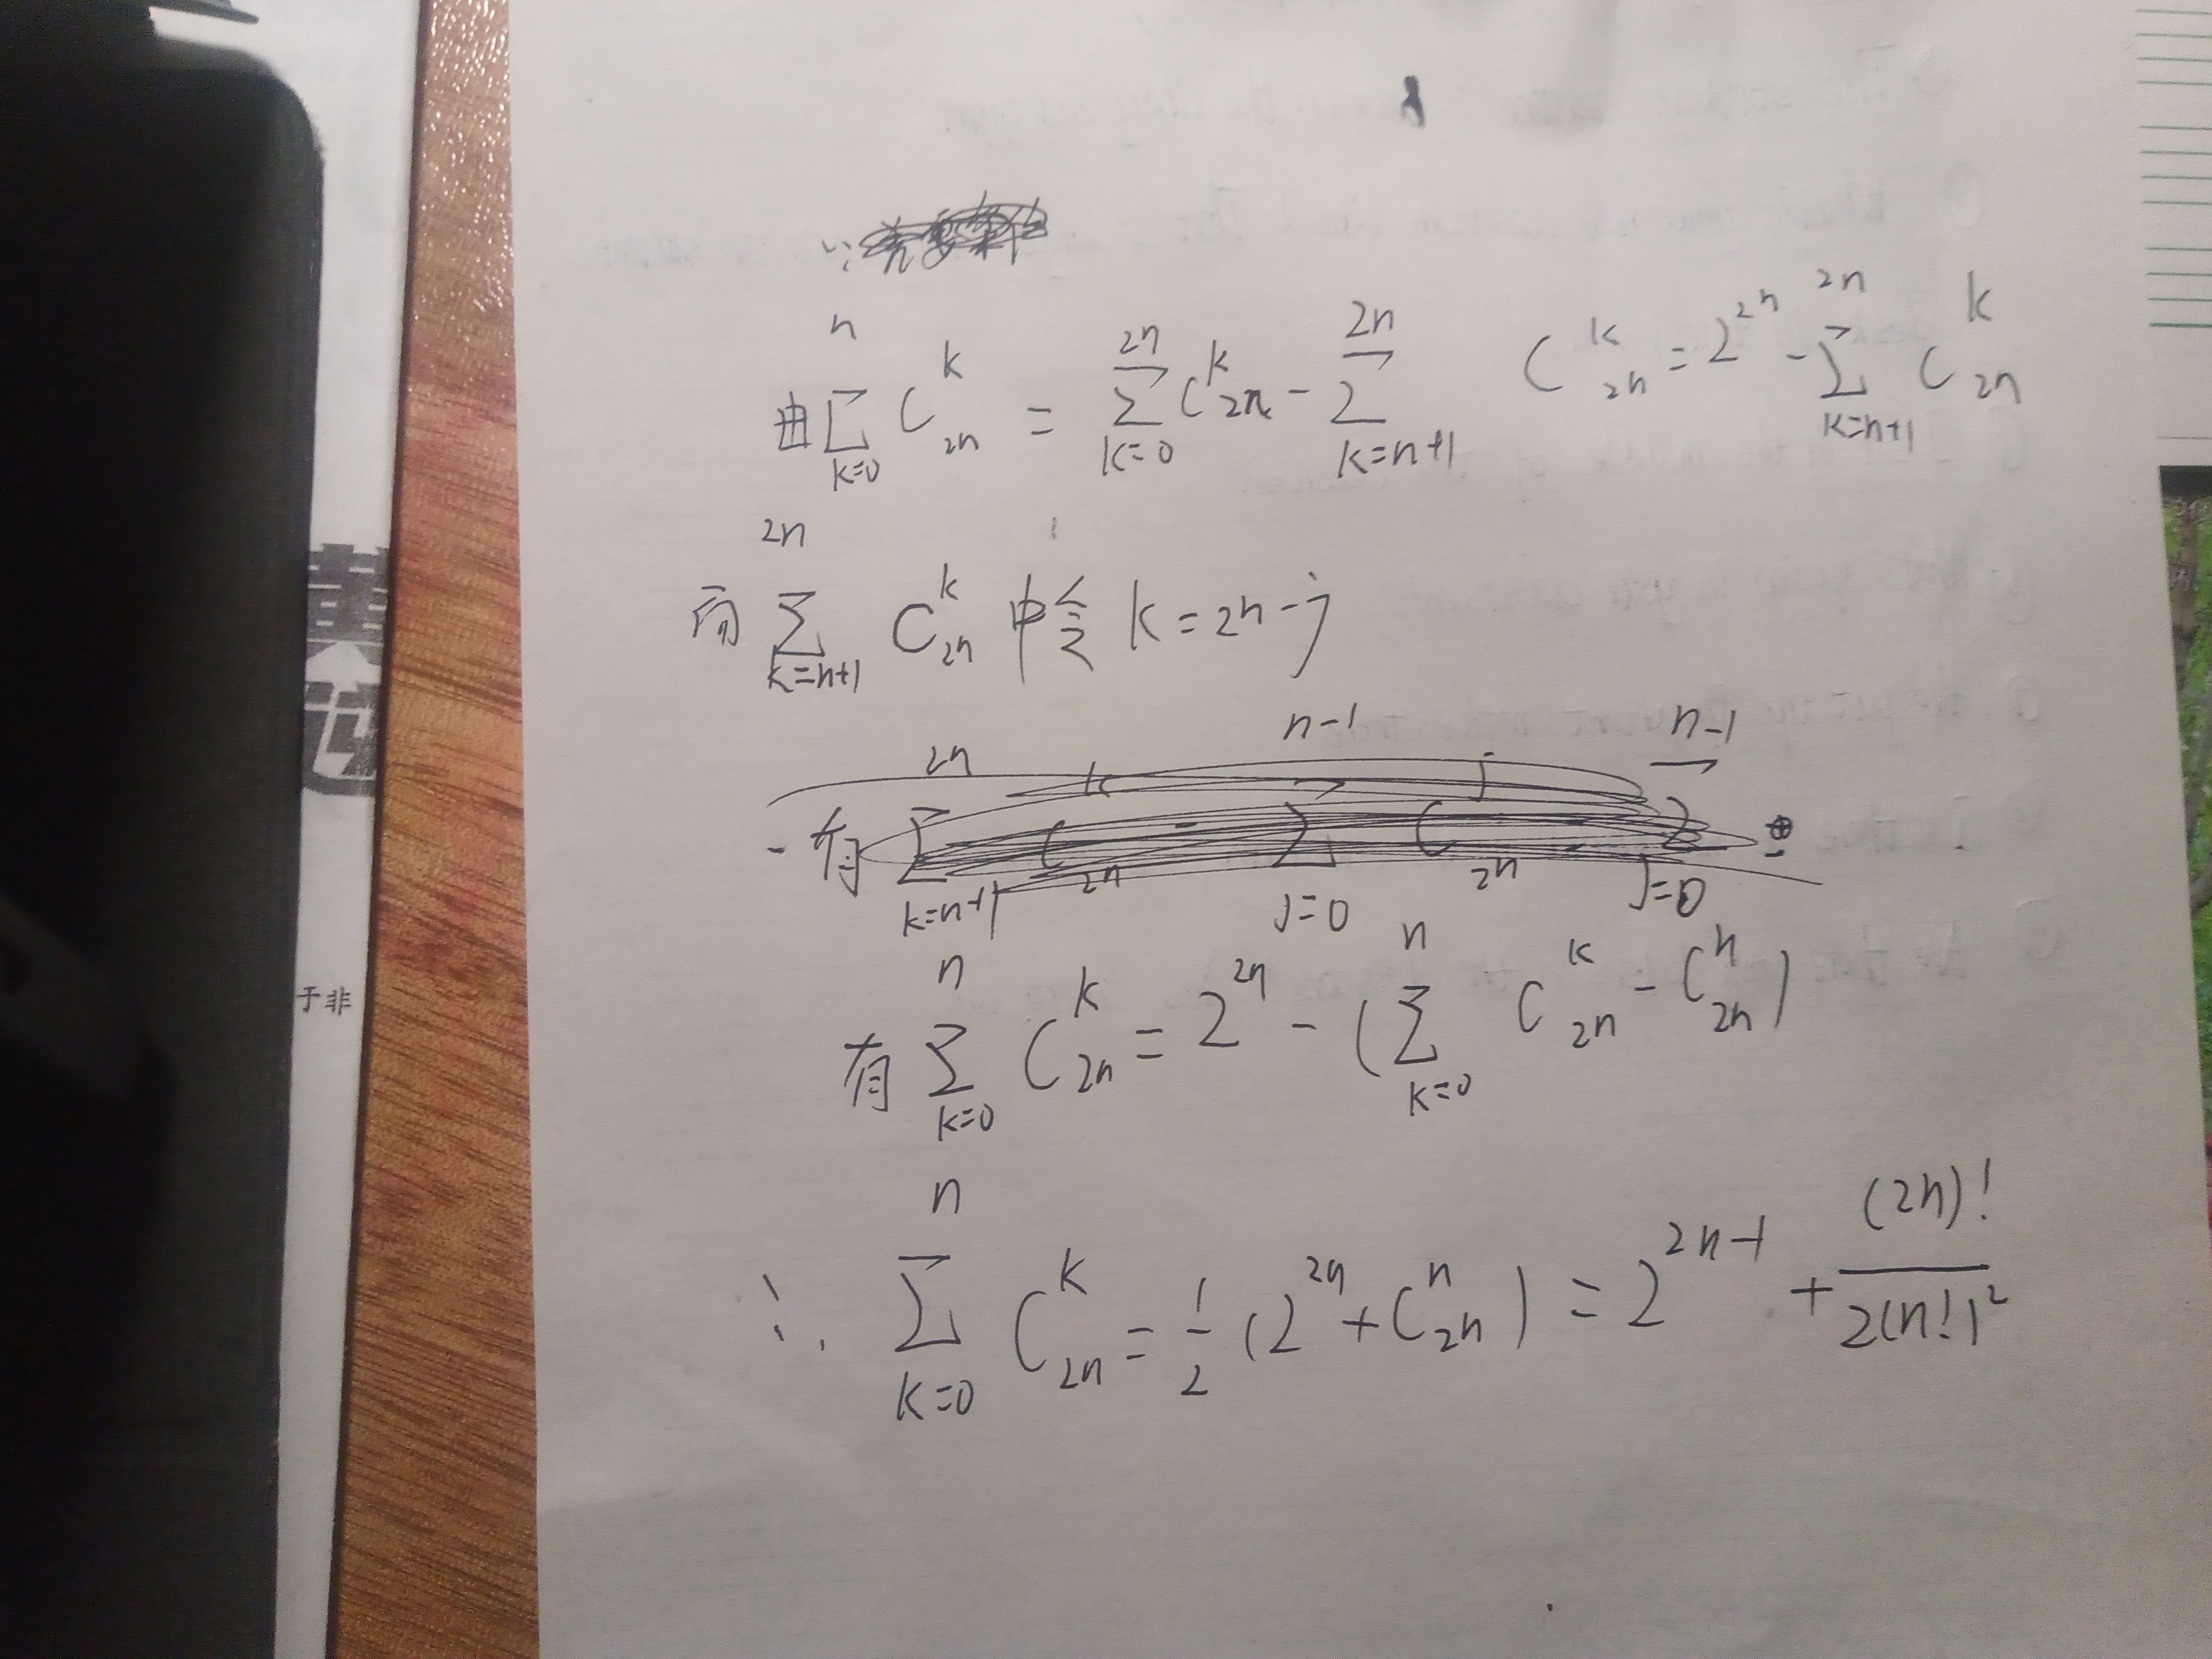 由∑_{k=0}^{n} C_{2n}^{k} = ∑_{k=0}^{2n} C_{2n}^{k} - ∑_{k=n+1}^{2n} C_{2n}^{k} = 2^{2n} - ∑_{k=n+1}^{2n} C_{2n}^{k}
而 ∑_{k=n+1}^{2n} C_{2n}^{k} 中令 k = 2n - j
有 ∑_{k=0}^{n} C_{2n}^{k} = 2^{2n} - (∑_{k=0}^{n} C_{2n}^{k} - C_{2n}^{n})
∴ ∑_{k=0}^{n} C_{2n}^{k} = \frac{1}{2} (2^{2n} + C_{2n}^{n}) = 2^{2n-1} + \frac{(2n)!}{2(n!)^2}
于非